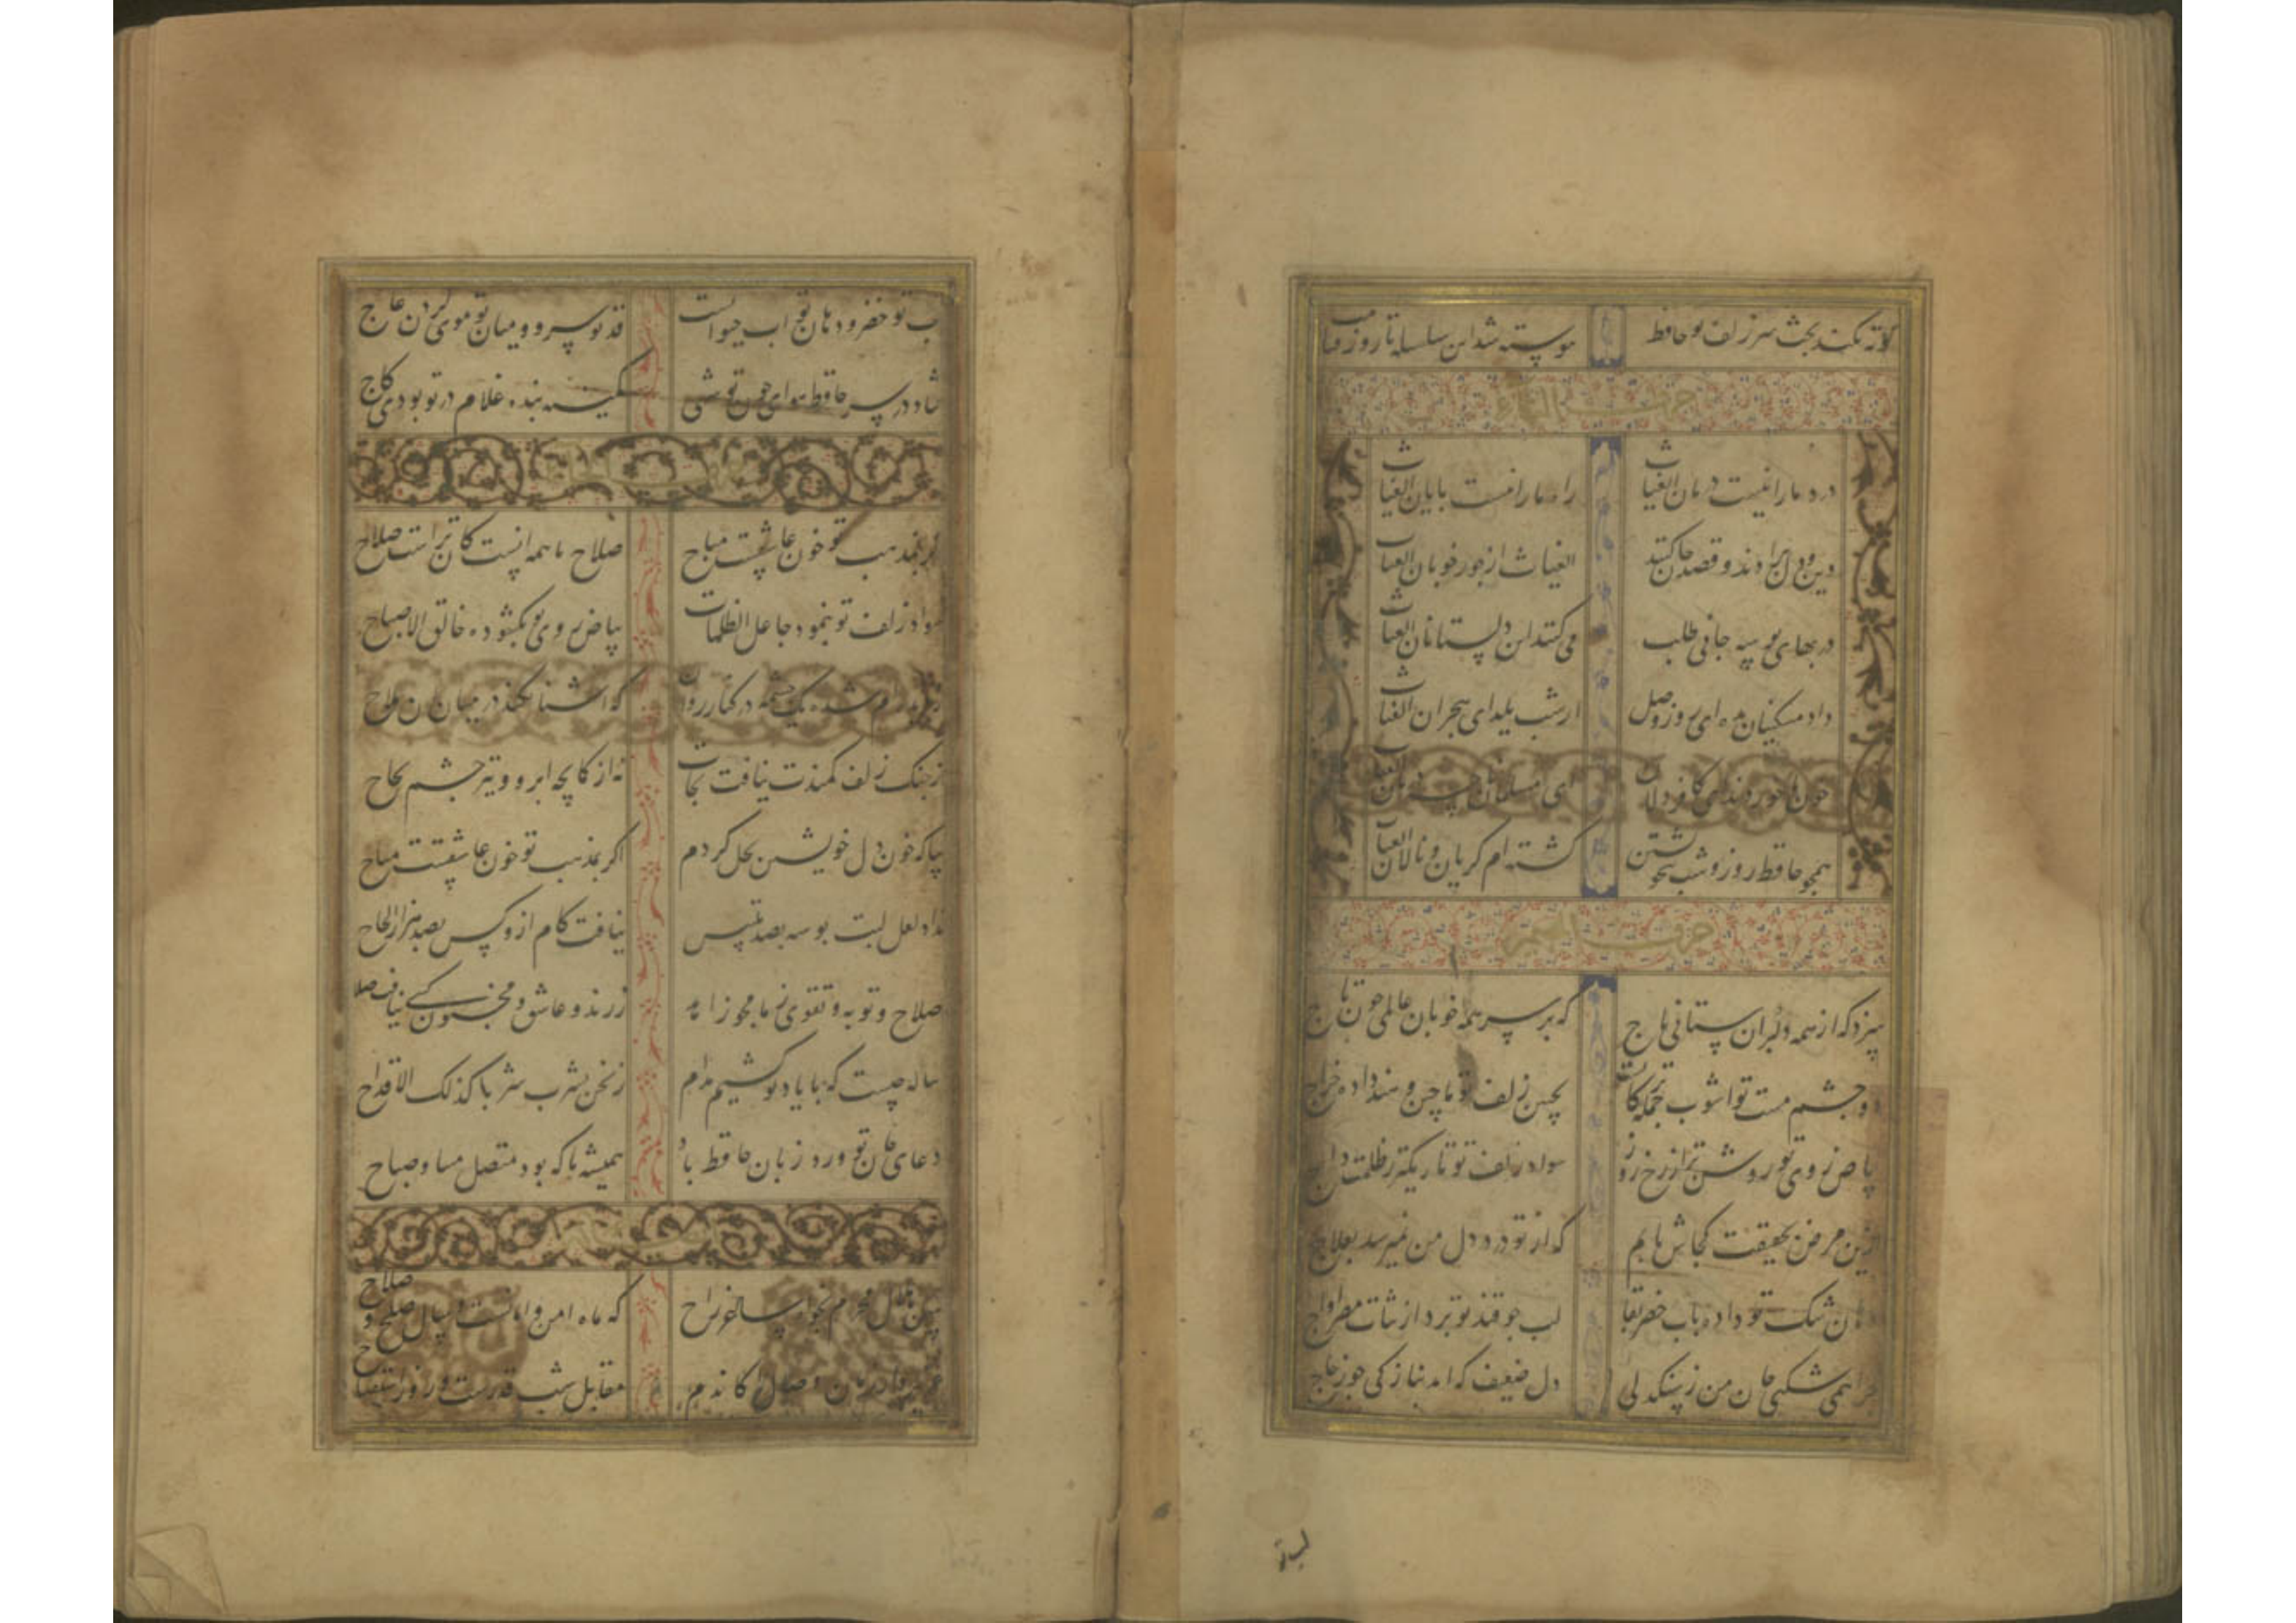 کوته نکند بحث سر زلف تو حافظ پیوسته شد این سلسله تا روز قیامت
حرف الثاء
درد ما را نیست درمان الغیاث راه ما را نیست پایان الغیاث
دین و دل بردند و قصد جان کنند الغیاث از جور خوبان الغیاث
در بهای بوسه جانی طلب می کنند این دلستانان الغیاث
داد مسکینان بده ای روز وصل از شب یلدای هجران الغیاث
خون ما خوردند این کافر دلان ای مسلمانان الغیاث
همچو حافظ روز و شب بی خویشتن گشته ام گریان و نالان الغیاث
حرف الجیم
سزد که از همه دلبران ستانی باج که بر سر همه خوبان عالمی چون تاج
دو چشم مست تو اشوب جمله ترکستان بچین زلف تو ماچین و هند داده خراج
بیاض روی تو روشن تر از رخ روز سواد زلف تو تاریکتر ز ظلمت داج
ازین مرض بحقیقت کجا شفا یابم که از تو درد دل من نمیرسد بعلاج
دهان تنگ تو داده باب خضر بقا لب چو قند تو برد از نبات مصر رواج
چرا همی شکنی جان من ز سنگدلی دل ضعیف که امد بنازکی چو زجاج
لب تو
لب تو خضر و دهان تو اب حیوانست قد تو سرو و میان تو موی و گردن عاج
فتاد در سر حافظ هوای چون تو شهی کمینه بنده غلام در تو بودی کاج
اگر بمذهب تو خون عاشقست مباح صلاح ما همه انست کان تراست صلاح
سواد زلف تو بنمود جاعل الظلمات بیاض روی تو بگشوده خالق الاصباح
ز دیده ام شده یک چشمه در کنار روان که اشنا نکند در میان ان ملاح
ز جنگ زلف کمندت نیافت نجات نه از کمانچه ابرو و تیر چشم نجاح
بیا که خون دل خویشتن بحل کردم اگر بمذهب تو خون عاشقست مباح
نداد لعل لبت بوسه بصد تلبیس نیافت کام ازو کس بصد هزار الحاح
صلاح و توبه و تقوی ز ما مجو زاهد ز رند و عاشق و مجنون کسی نیافت صلاح
پیاله چیست که با یاد تو کشیم مدام ز نحن نشرب شربا کذلک الاقداح
دعای جان تو ورد زبان حافظ باد همیشه تا که بود متصل مسا و صباح
ببین هلال محرم بخواه ساغر راح که ماه امن و امانست و سال صلح و صلاح
عزیز دار زمان وصال را کاندم مقابل شب قدرست و روز استفتاح